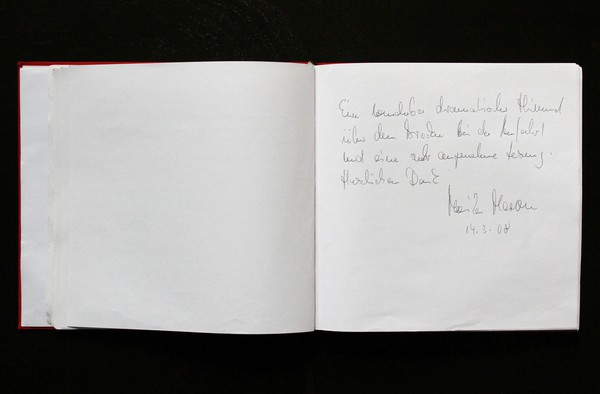 Ein wunderbar dramatischer Himmel
über dem bei der Anfahrt
und eine sehr angenehme Lesung.
Herzlichen Dank
Monika Maron
14.3.08